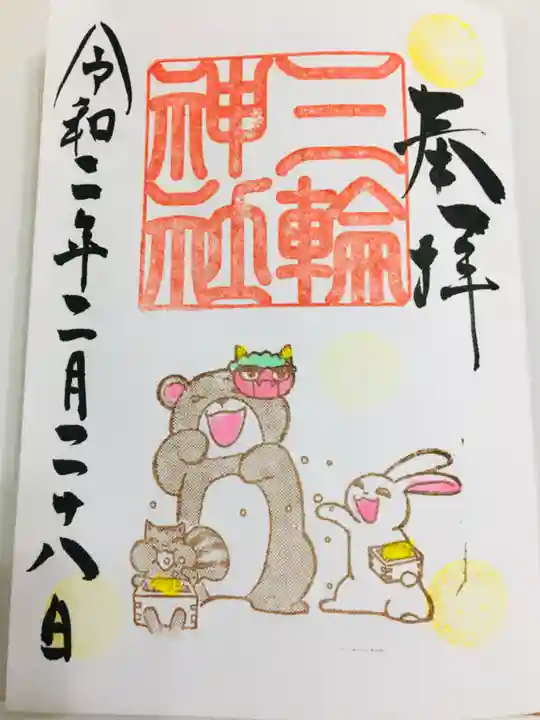 奉拝
三輪
神社
令和二年二月二十八日